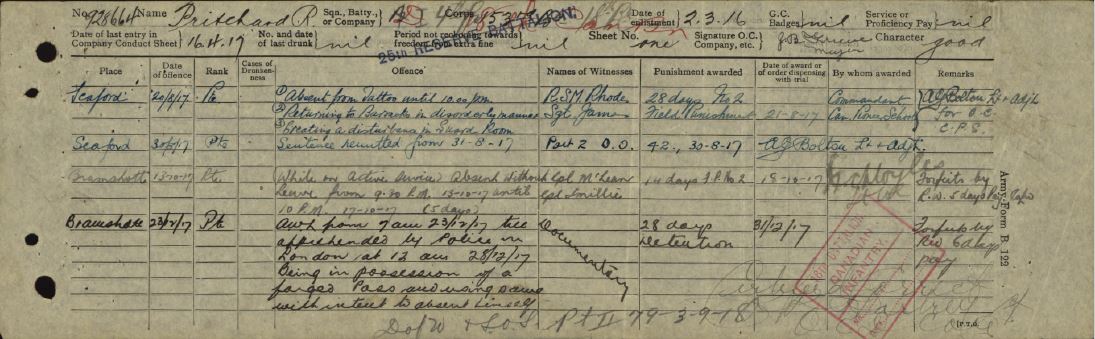 No. 928664 Name Pritchard R. Sqn., Batty., or Company Corps Date of enlistment 2.3.16 G.C. Badges nil Service or Proficiency Pay nil
Date of last entry in Company Conduct Sheet 16.4.17 No. and date of last drunk nil Period not reckoning towards freedom from extra fine nil Sheet No. one Signature O.C. Company, etc. Character good
25th RESERVE BATTALION
Place Date of offence Rank Cases of Drunkenness Offence Names of Witnesses Punishment awarded Date of award or of order dispensing with trial By whom awarded Remarks
Seaford 20/8/17 Pte (1) Absent from Tattoo until 10.00 pm RSM Rhodes 28 days No 2 Commandant AG Bolton Lt + Adjt
(2) Returning to Barracks in disorderly manner Sgt James Field Punishment 21-8-17 School for O.C.
(3) Creating a disturbance in Guard Room C.P.S.
Seaford 30/8/17 Pte Sentence remitted from 31-8-17 Part 2 O.O. 42, 30-8-17 AG Bolton Lt + Adjt.
Bramshott 13-10-17 Pte. While on Active Service Absent without Cpl McLean 14 days F.P. No 2 18-10-17 Forfeits by
Leave from 9.30 P.M. 13-10-17 until Cpl Smillie R.W. 5 days Pay
10 P.M. 17-10-17 (5 days)
Bramshott 23/12/17 Pte AWL from 7 am 23/12/17 till Documentary 28 days 31/12/17 Forfeits by
apprehended by Police in Detention RW 6 days
London at 12 am 28/12/17 pay
Being in possession of a
forged Pass and using same
with intent to absent himself
CANADIAN
INFANTRY
D of W & S.O.S. Pt II 79-3-9-18
Army Form B. 122
(P.T.O.